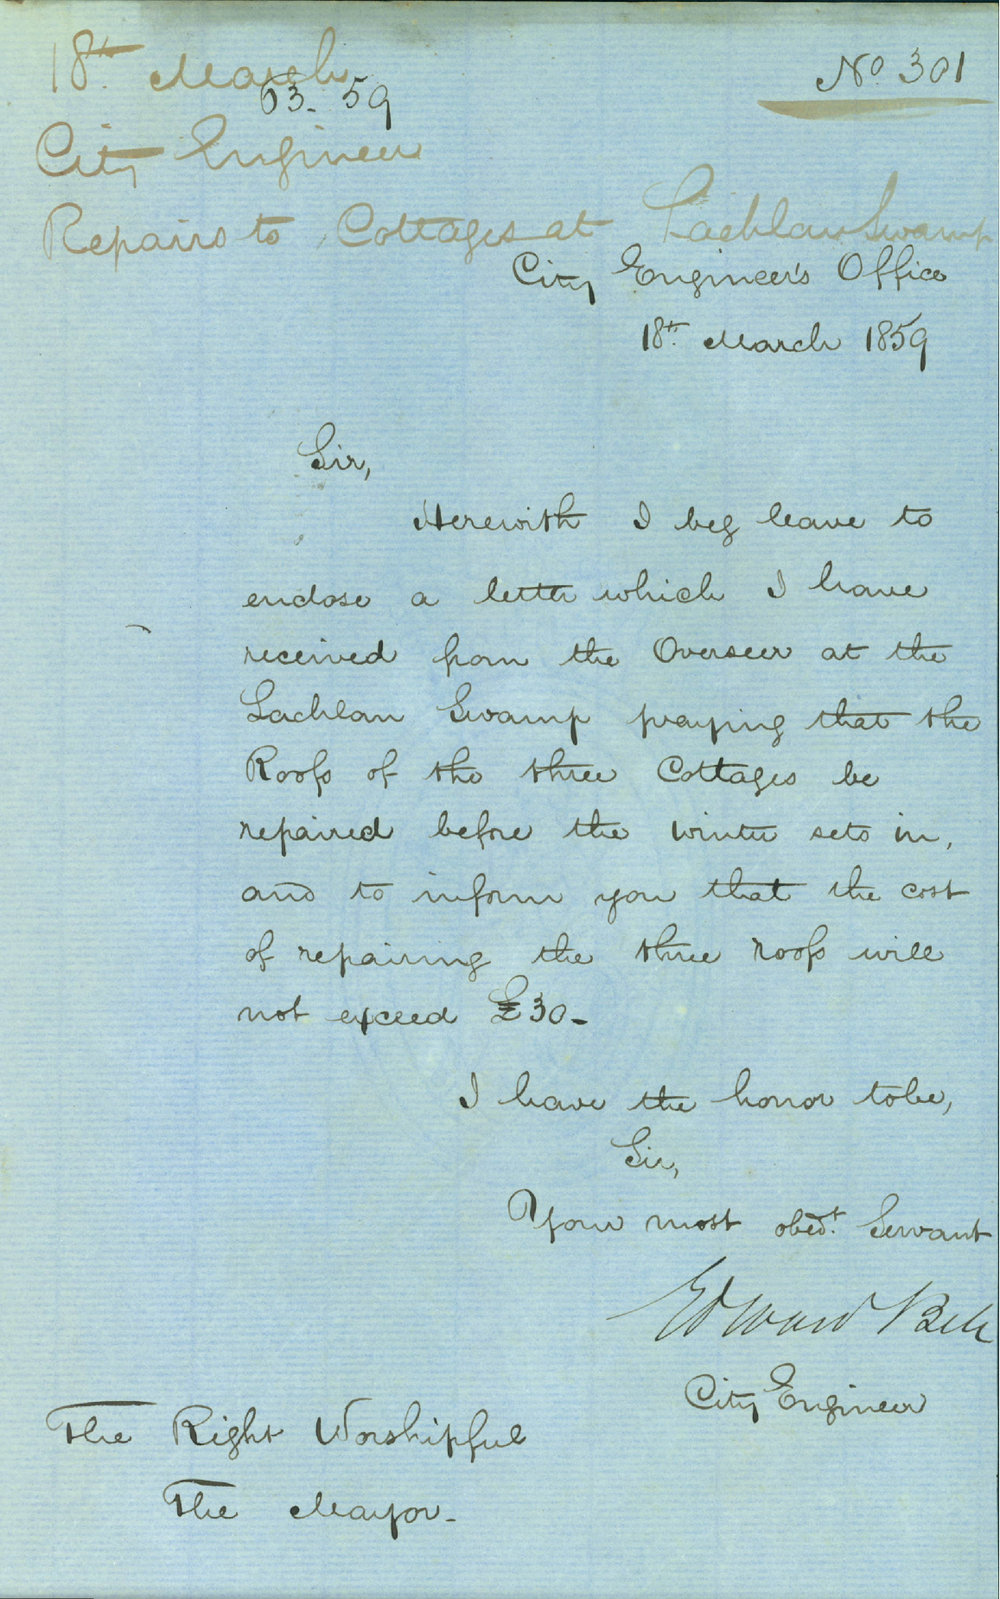 18th March
63. 59
No 301
City Engineer
Repairs to Cottages at Lachlan Swamp
City Engineer's Office
18th March 1859
Sir,
Herewith I beg leave to
enclose a letter which I have
received from the Overseer at the
Lachlan Swamp praying that the
Roofs of the three Cottages be
repaired before the winter sets in,
and to inform you that the cost
of repairing the three roofs will
not exceed £30-
I have the honor to be,
Sir,
Your most obedt. Servant
Edward Bell
City Engineer
The Right Worshipful
The Mayor-